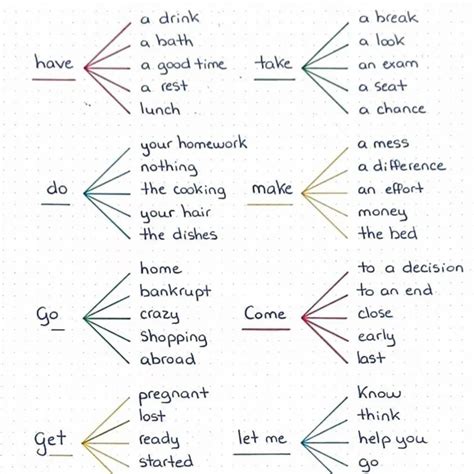 have
a drink
a bath
a good time
a rest
lunch
take
a break
a look
an exam
a seat
a chance
do
your homework
nothing
the cooking
your hair
the dishes
make
a mess
a difference
an effort
money
the bed
Go
home
bankrupt
crazy
Shopping
abroad
Come
to a decision
to an end
close
early
last
Get
pregnant
lost
ready
started
let me
Know
think
help you
go